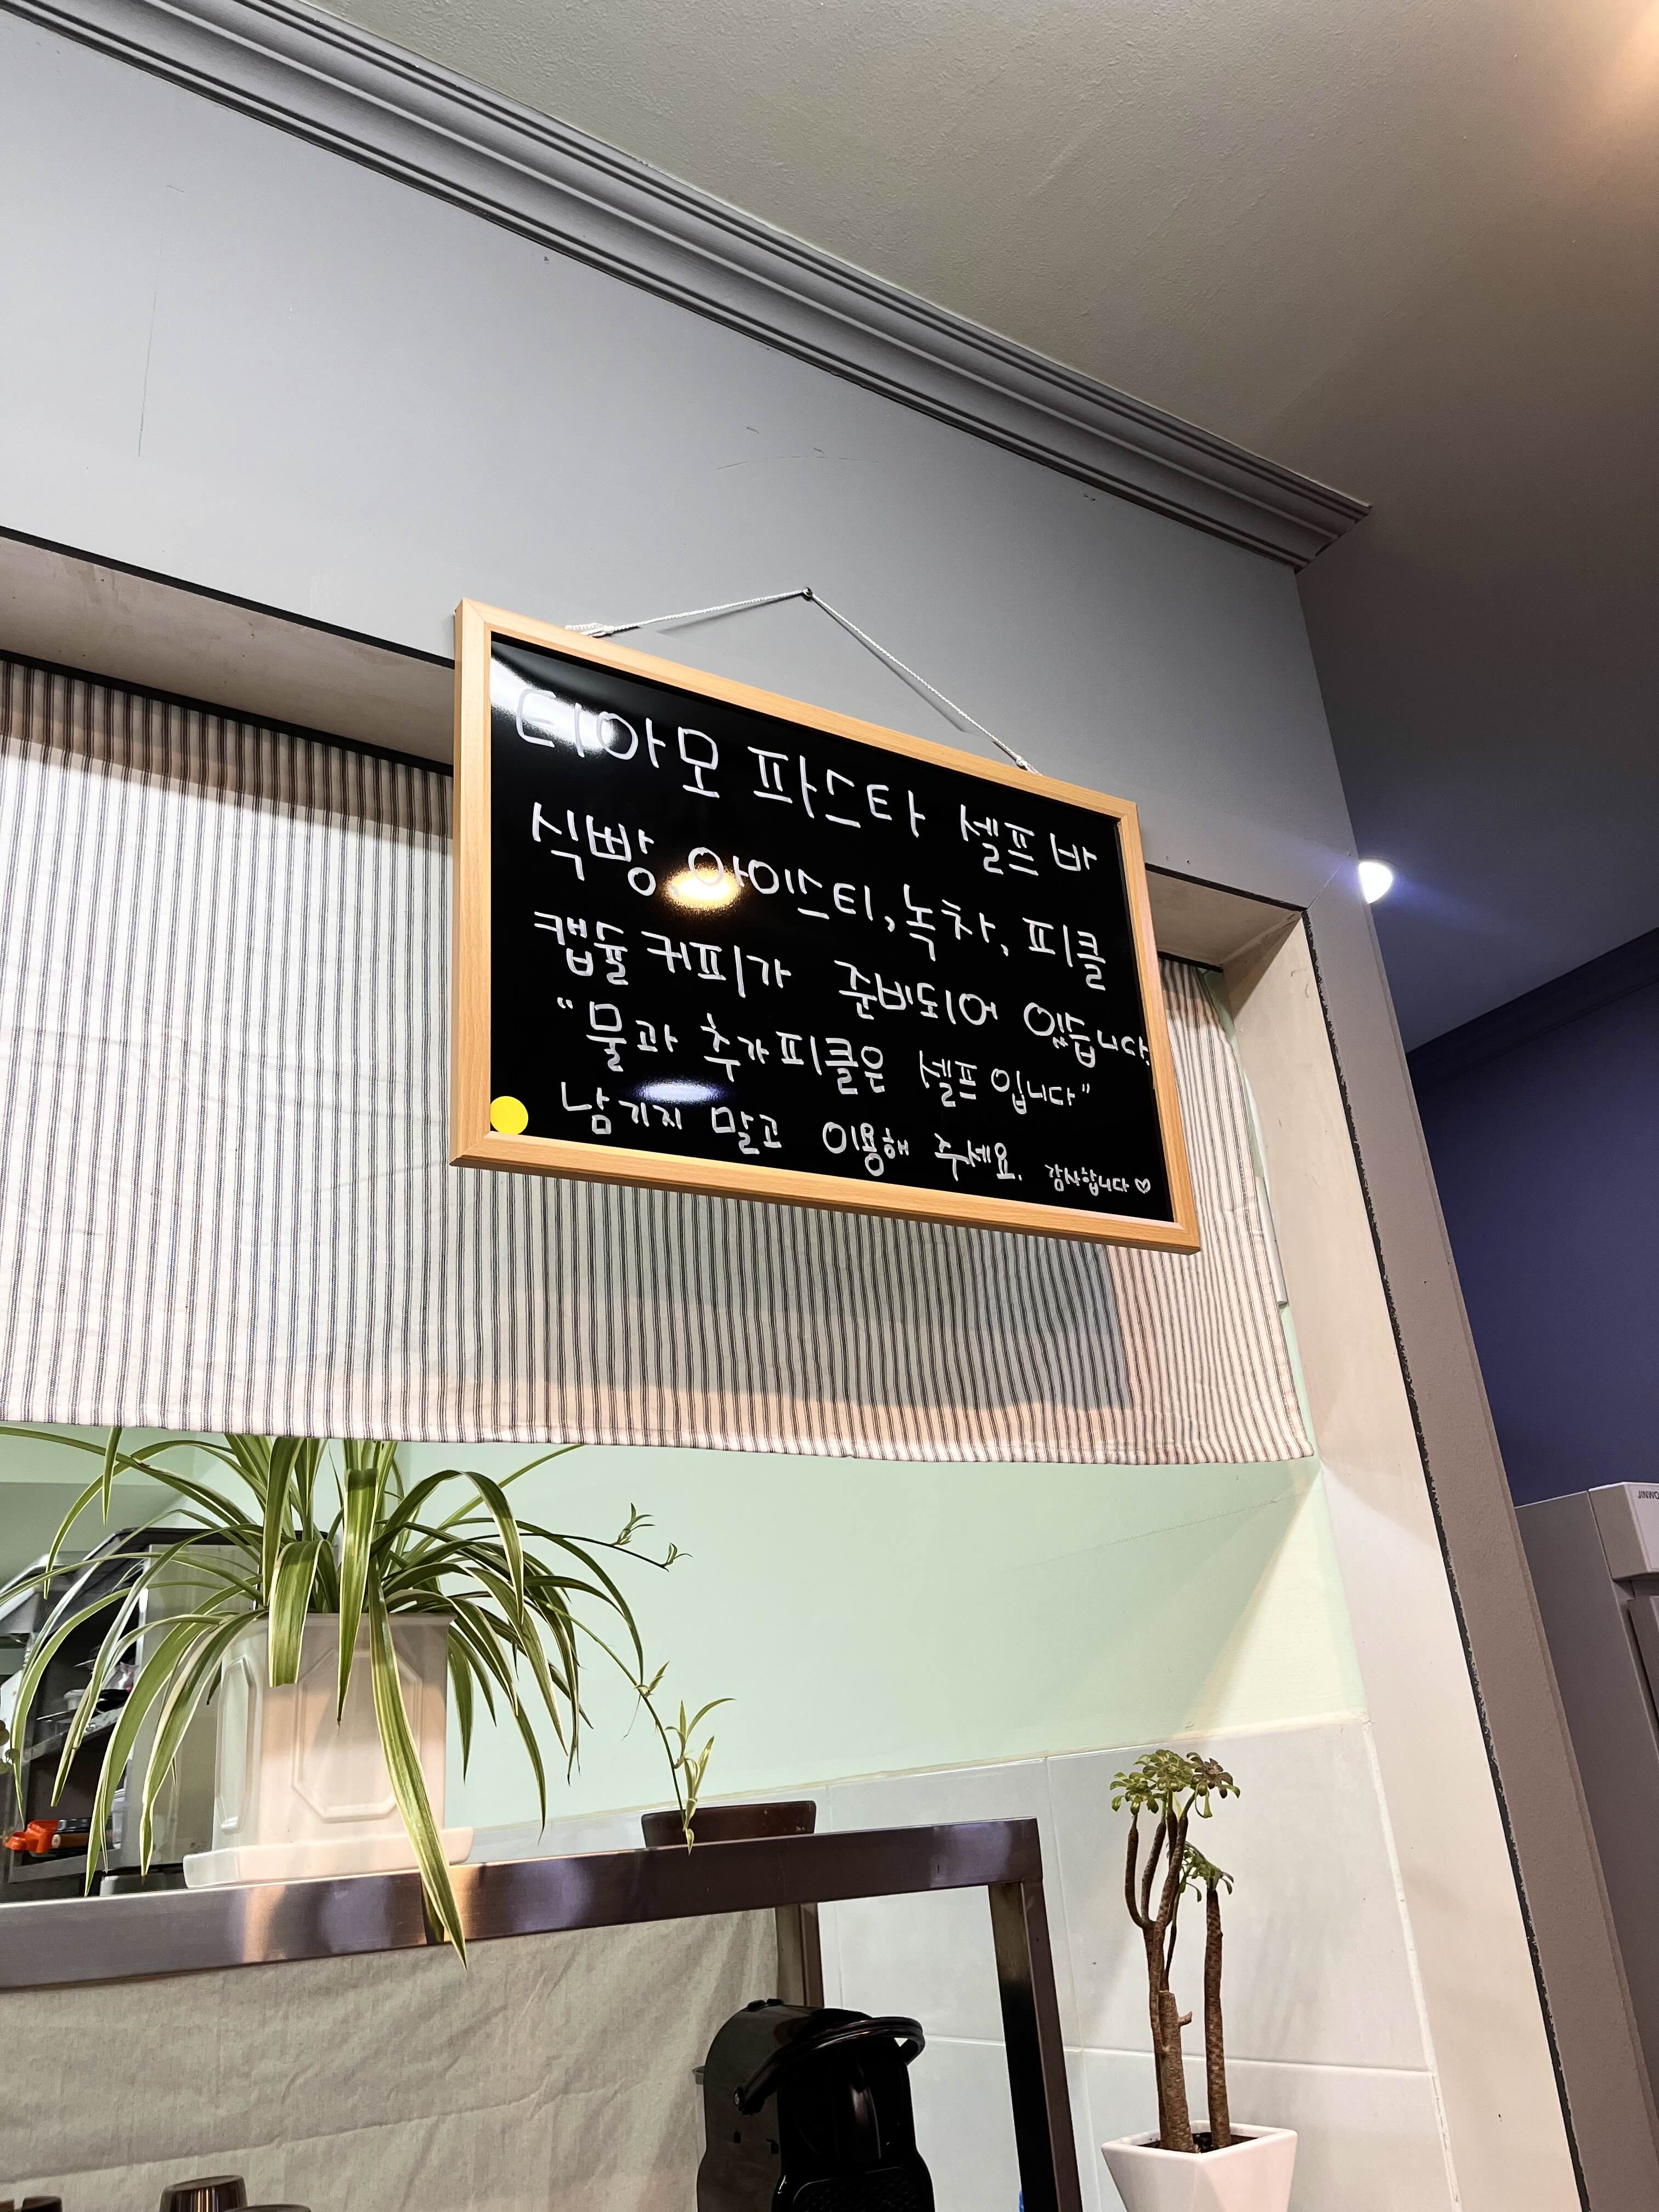 티아모 파스타 셀프 바
식빵, 아이스티, 녹차, 피클
캡슐 커피가 준비되어 있습니다.
"물과 추가 피클은 셀프 입니다"
남기지 말고 이용해 주세요. 감사합니다♡